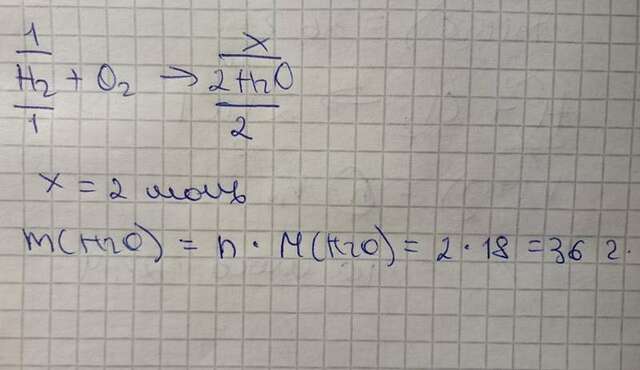 1 x
H2 + O2 → 2H2O
1 2
x = 2 моль
m(H2O) = n · M(H2O) = 2 · 18 = 36 г.